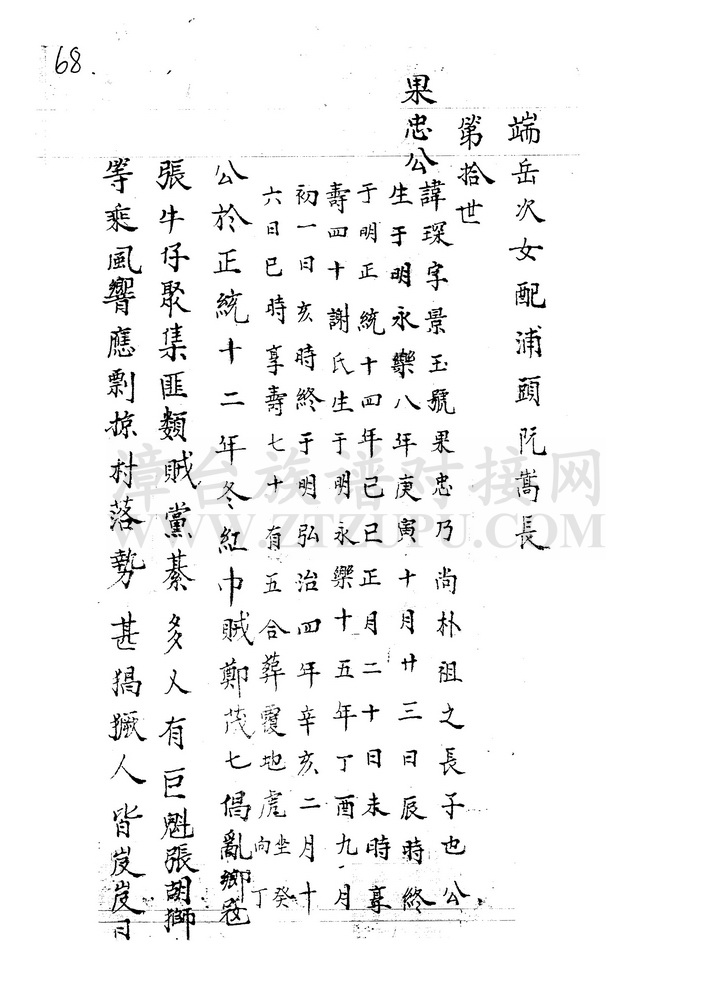 68.
端岳次女配浦頭阮嵩長
第拾世
果忠公
諱琛字景玉號果忠乃尚朴祖之長子也公
生于明永樂八年庚寅十月廿三日辰時終
于明正統十四年己巳正月二十日未時享
壽四十謝氏生于明永樂十五年丁酉九月
初一日亥時終于明弘治四年辛亥二月十
六日巳時享壽七十有五合葬覆地虎坐癸
向丁
公於正統十二年冬紅巾賊鄭茂七倡亂鄉寇
張牛仔聚集匪類賊黨綦多人有巨魁張胡獅
等乘風響應剽掠村落勢甚猖獗人皆岌岌日
漳台族谱对接网
WWW.ZTZUPU.COM